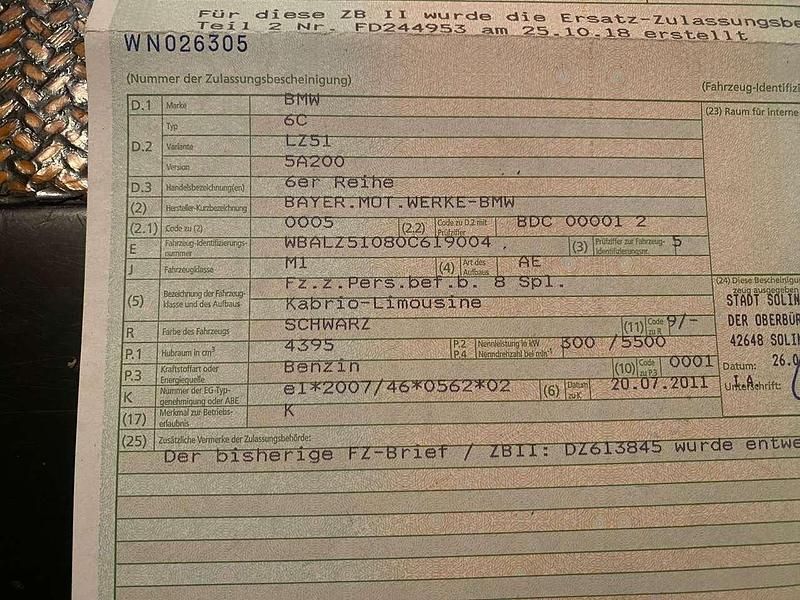 Für diese ZB II wurde die Ersatz-Zulassungsbe
Teil 2 Nr. FD244953 am 25.10.18 erstellt
WN026305
(Nummer der Zulassungsbescheinigung)
(Fahrzeug-Identifizi
D.1 Marke BMW
(23) Raum für interne
Typ 6C
D.2 Variante LZ51
Version 5A200
D.3 Handelsbezeichnung(en) 6er Reihe
(2) Hersteller-Kurzbezeichnung BAYER.MOT.WERKE-BMW
(2.1) Code zu (2) 0005 (2.2) Code zu D.2 mit Prüfziffer BDC 00001 2
E Fahrzeug-Identifizierungs-nummer WBALZ51080C619004 , (3) Prüfziffer zur Fahrzeug-Identifizierungsnr. 5
J Fahrzeugklasse M1 (4) Art des Aufbaus AE
(5) Bezeichnung der Fahrzeug-klasse und des Aufbaus Fz.z.Pers.bef.b. 8 Spl.
Kabrio-Limousine
(24) Diese Bescheinigu
zeug ausgegeben
STADT SOLIN
DER OBERBÜR
42648 SOLIN
Datum: 26.0
Unterschrift: I.A.
R Farbe des Fahrzeugs SCHWARZ (11) Code zu R 9/-
P.1 Hubraum in cm³ 4395 P.2 Nennleistung in kW P.4 Nenndrehzahl bei min⁻¹ 300 /5500
P.3 Kraftstoffart oder Energiequelle Benzin (10) Code zu P.3 0001
K Nummer der EG-Typ-genehmigung oder ABE e1*2007/46*0562*02 (6) Datum zu K 20.07.2011
(17) Merkmal zur Betriebs-erlaubnis K
(25) Zusätzliche Vermerke der Zulassungsbehörde:
Der bisherige FZ-Brief / ZBII: DZ613845 wurde entwe